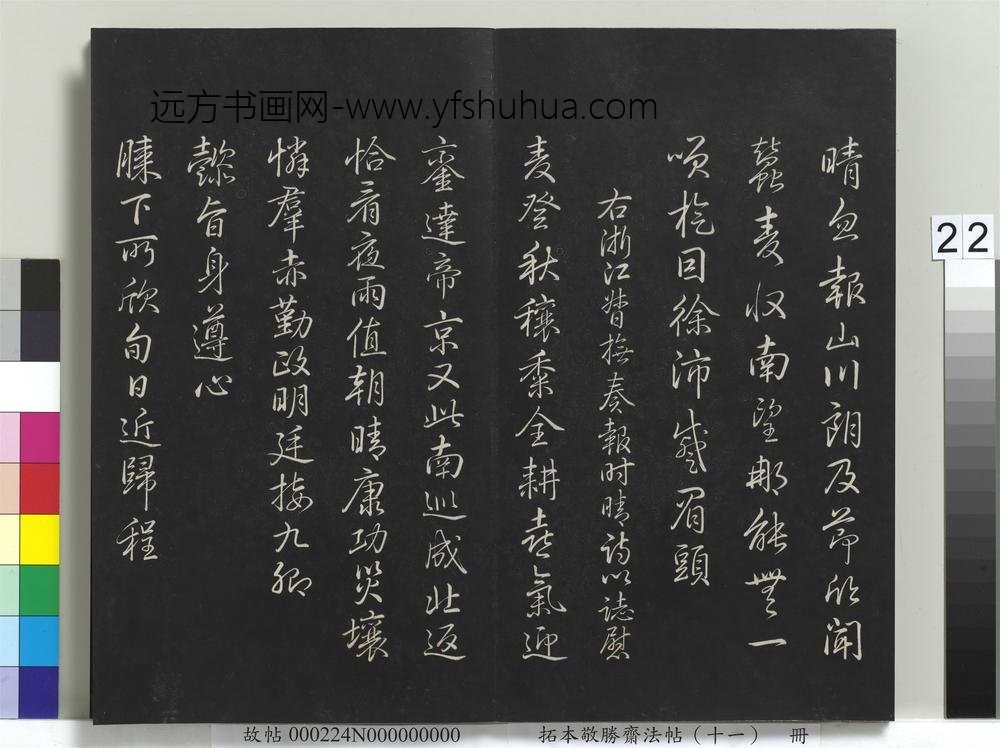 远方书画网-www.yfshuhua.com
晴忽報山川朗及節欣聞
蠶麦収南望那能無一
咲回徐沛眉頭
右浙江督撫奏報时晴詩以誌慰
麦登秋穰黍全耕喜氣迎
鑾達帝京又此南巡成北返
恰看夜雨值朝晴康功災壤
憐羣赤勤政明廷接九卿
懿旨身遵心
膝下所欣旬日近歸程
22
故帖 000224N000000000
拓本敬勝齋法帖（十一） 冊